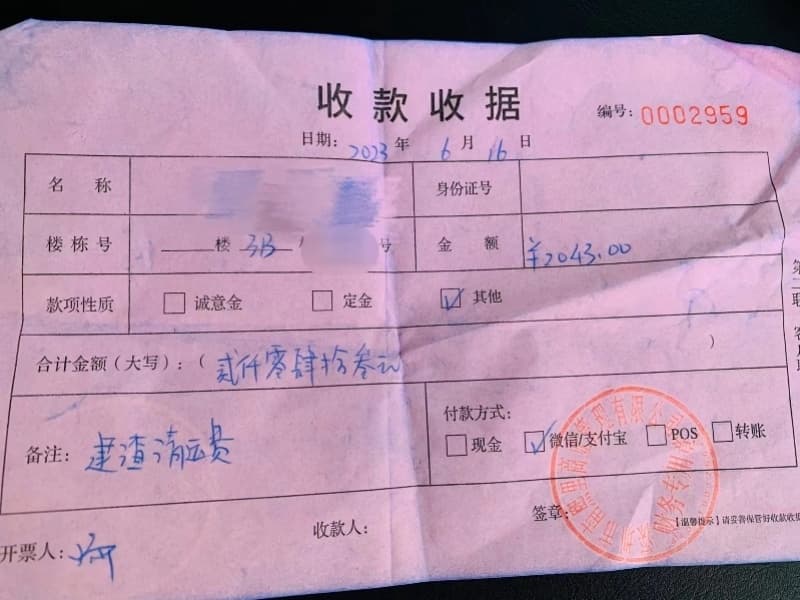 收款收据
编号：0002959
日期：2023年6月16日
名 称
身份证号
楼栋号 楼 3B 号
金 额 ¥2043.00
款项性质 □诚意金 □定金 ☑其他
合计金额（大写）：（贰仟零肆拾叁元）
备注：建渣清运费
付款方式：
□现金 ☑微信/支付宝 □POS □转账
签章：
【温馨提示】请妥善保管好收款收据
收款人：
开票人：
财务专用章